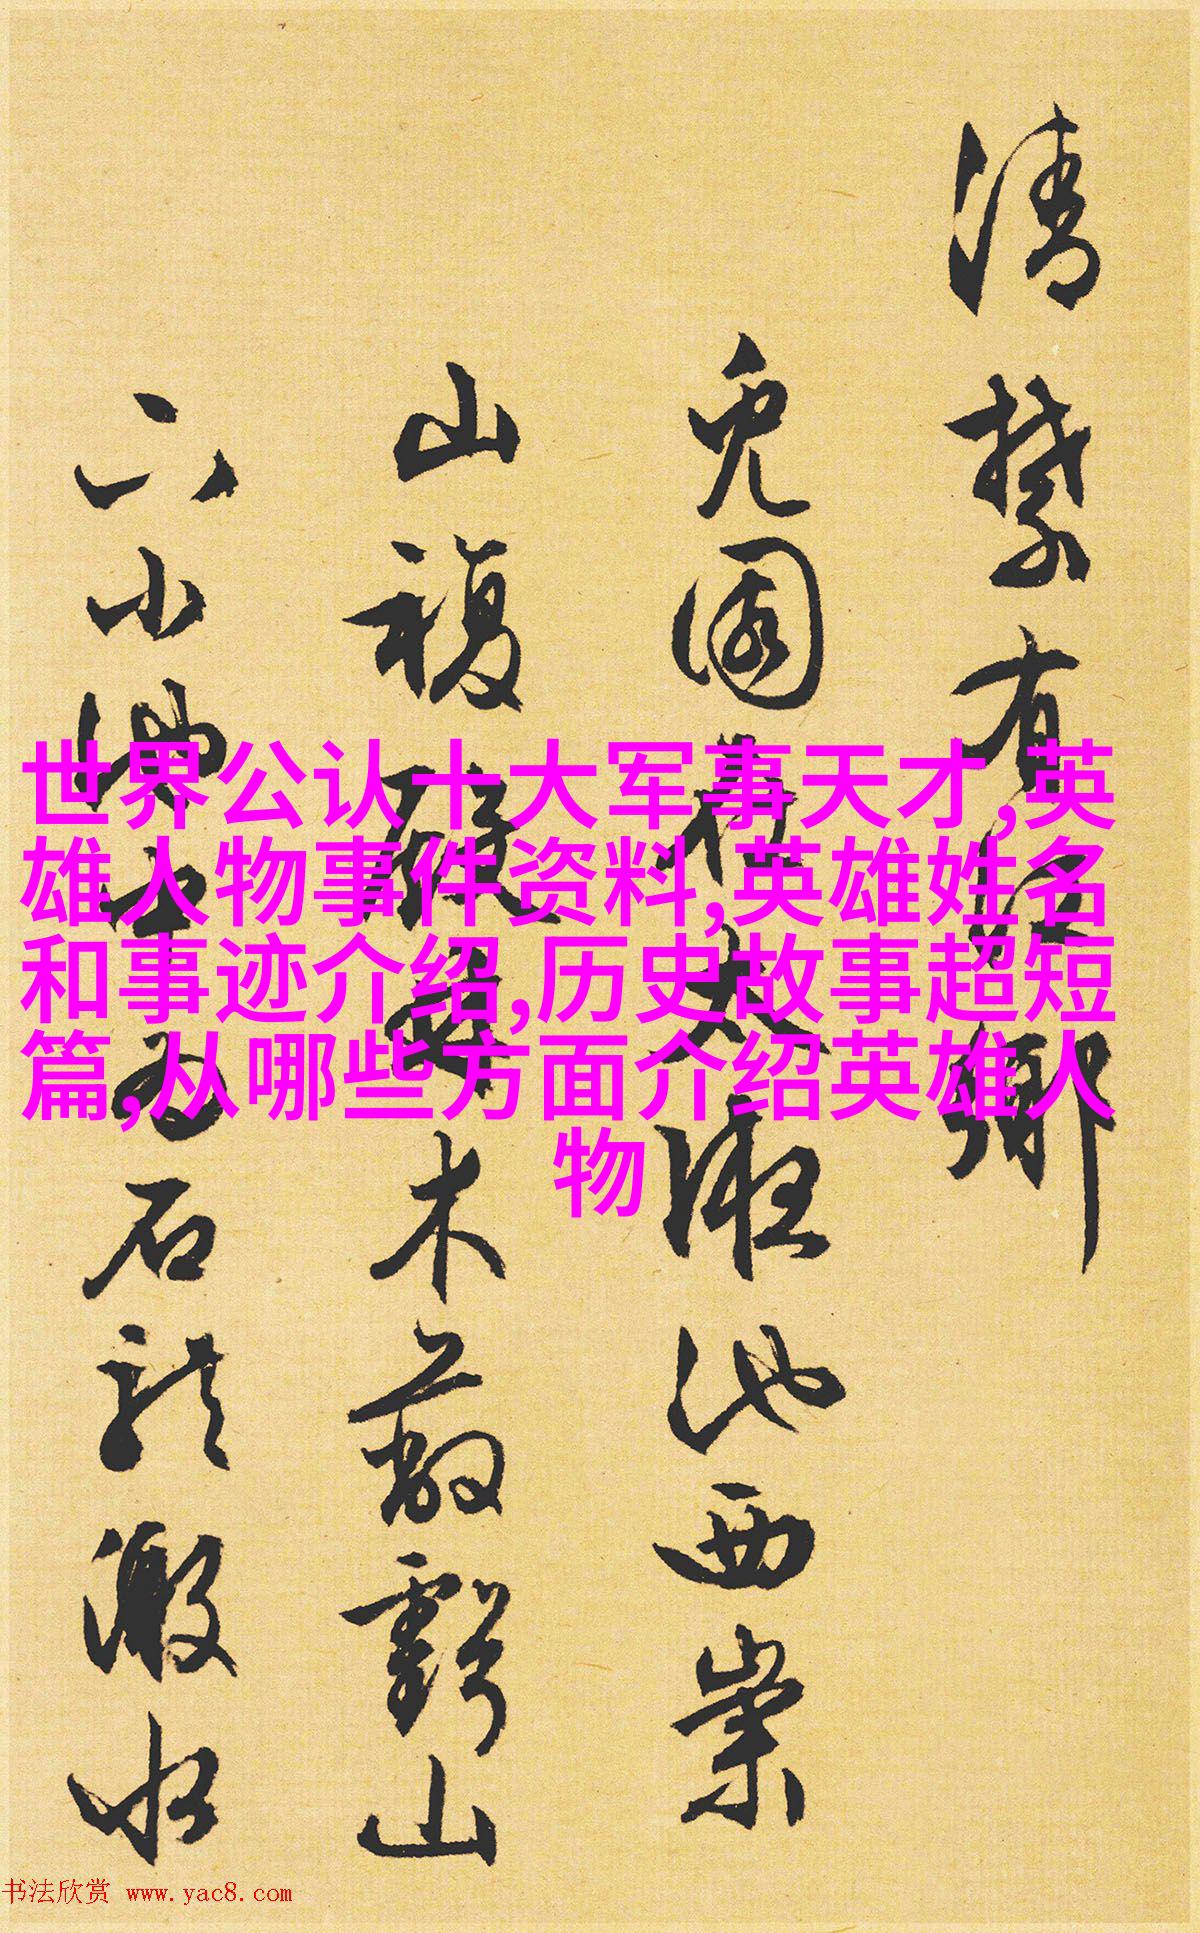 清禁有鄉
兔園太液池西崇
山複殿木蔽虧山
下小池石龍激水
世界公认十大军事天才,英
雄人物事件资料,英雄姓名
和事迹介绍,历史故事超短
篇,从哪些方面介绍英雄人
物
书法欣赏 www.yac8.com